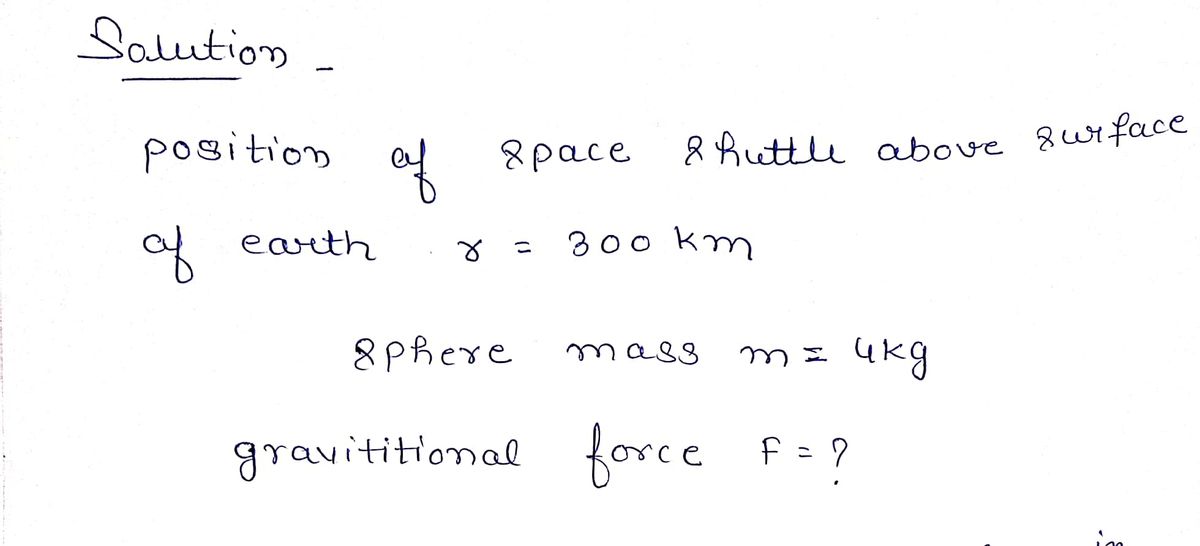 Solution -
position of space shuttle above surface
of earth r = 300 km
sphere mass m = 4kg
gravititional force F = ?